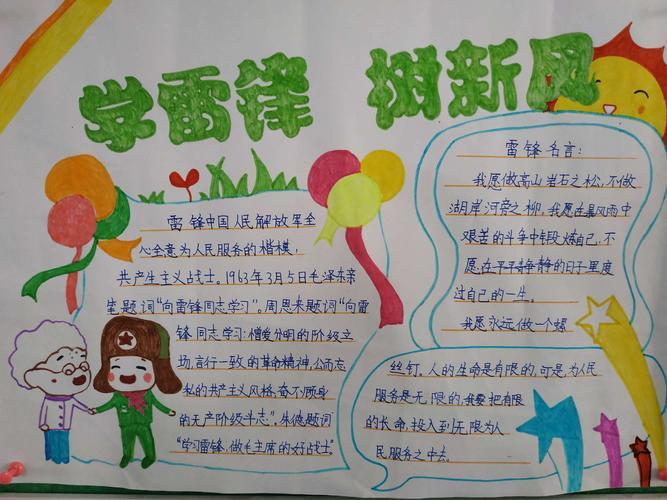 学雷锋 树新风
雷锋中国人民解放军全
心全意为人民服务的楷模,
共产主义战士。1963年3月5日毛泽东亲
笔题词“向雷锋同志学习”。周恩来题词“向雷
锋同志学习:憎爱分明的阶级立
场,言行一致的革命精神,公而忘
私的共产主义风格,奋不顾身
的无产阶级斗志”。朱德题词
“学习雷锋,做毛主席的好战士”
雷锋名言:
我愿做高山岩石之松,不做
湖岸河旁之柳,我愿在暴风雨中
艰苦的斗争中锻炼自己,不
愿在平平静静的日子里度
过自己的一生。
我愿永远做一个螺
丝钉,人的生命是有限的,可是为人民
服务是无限的,我要把有限
的长命,投入到无限为人
民服务之中去。